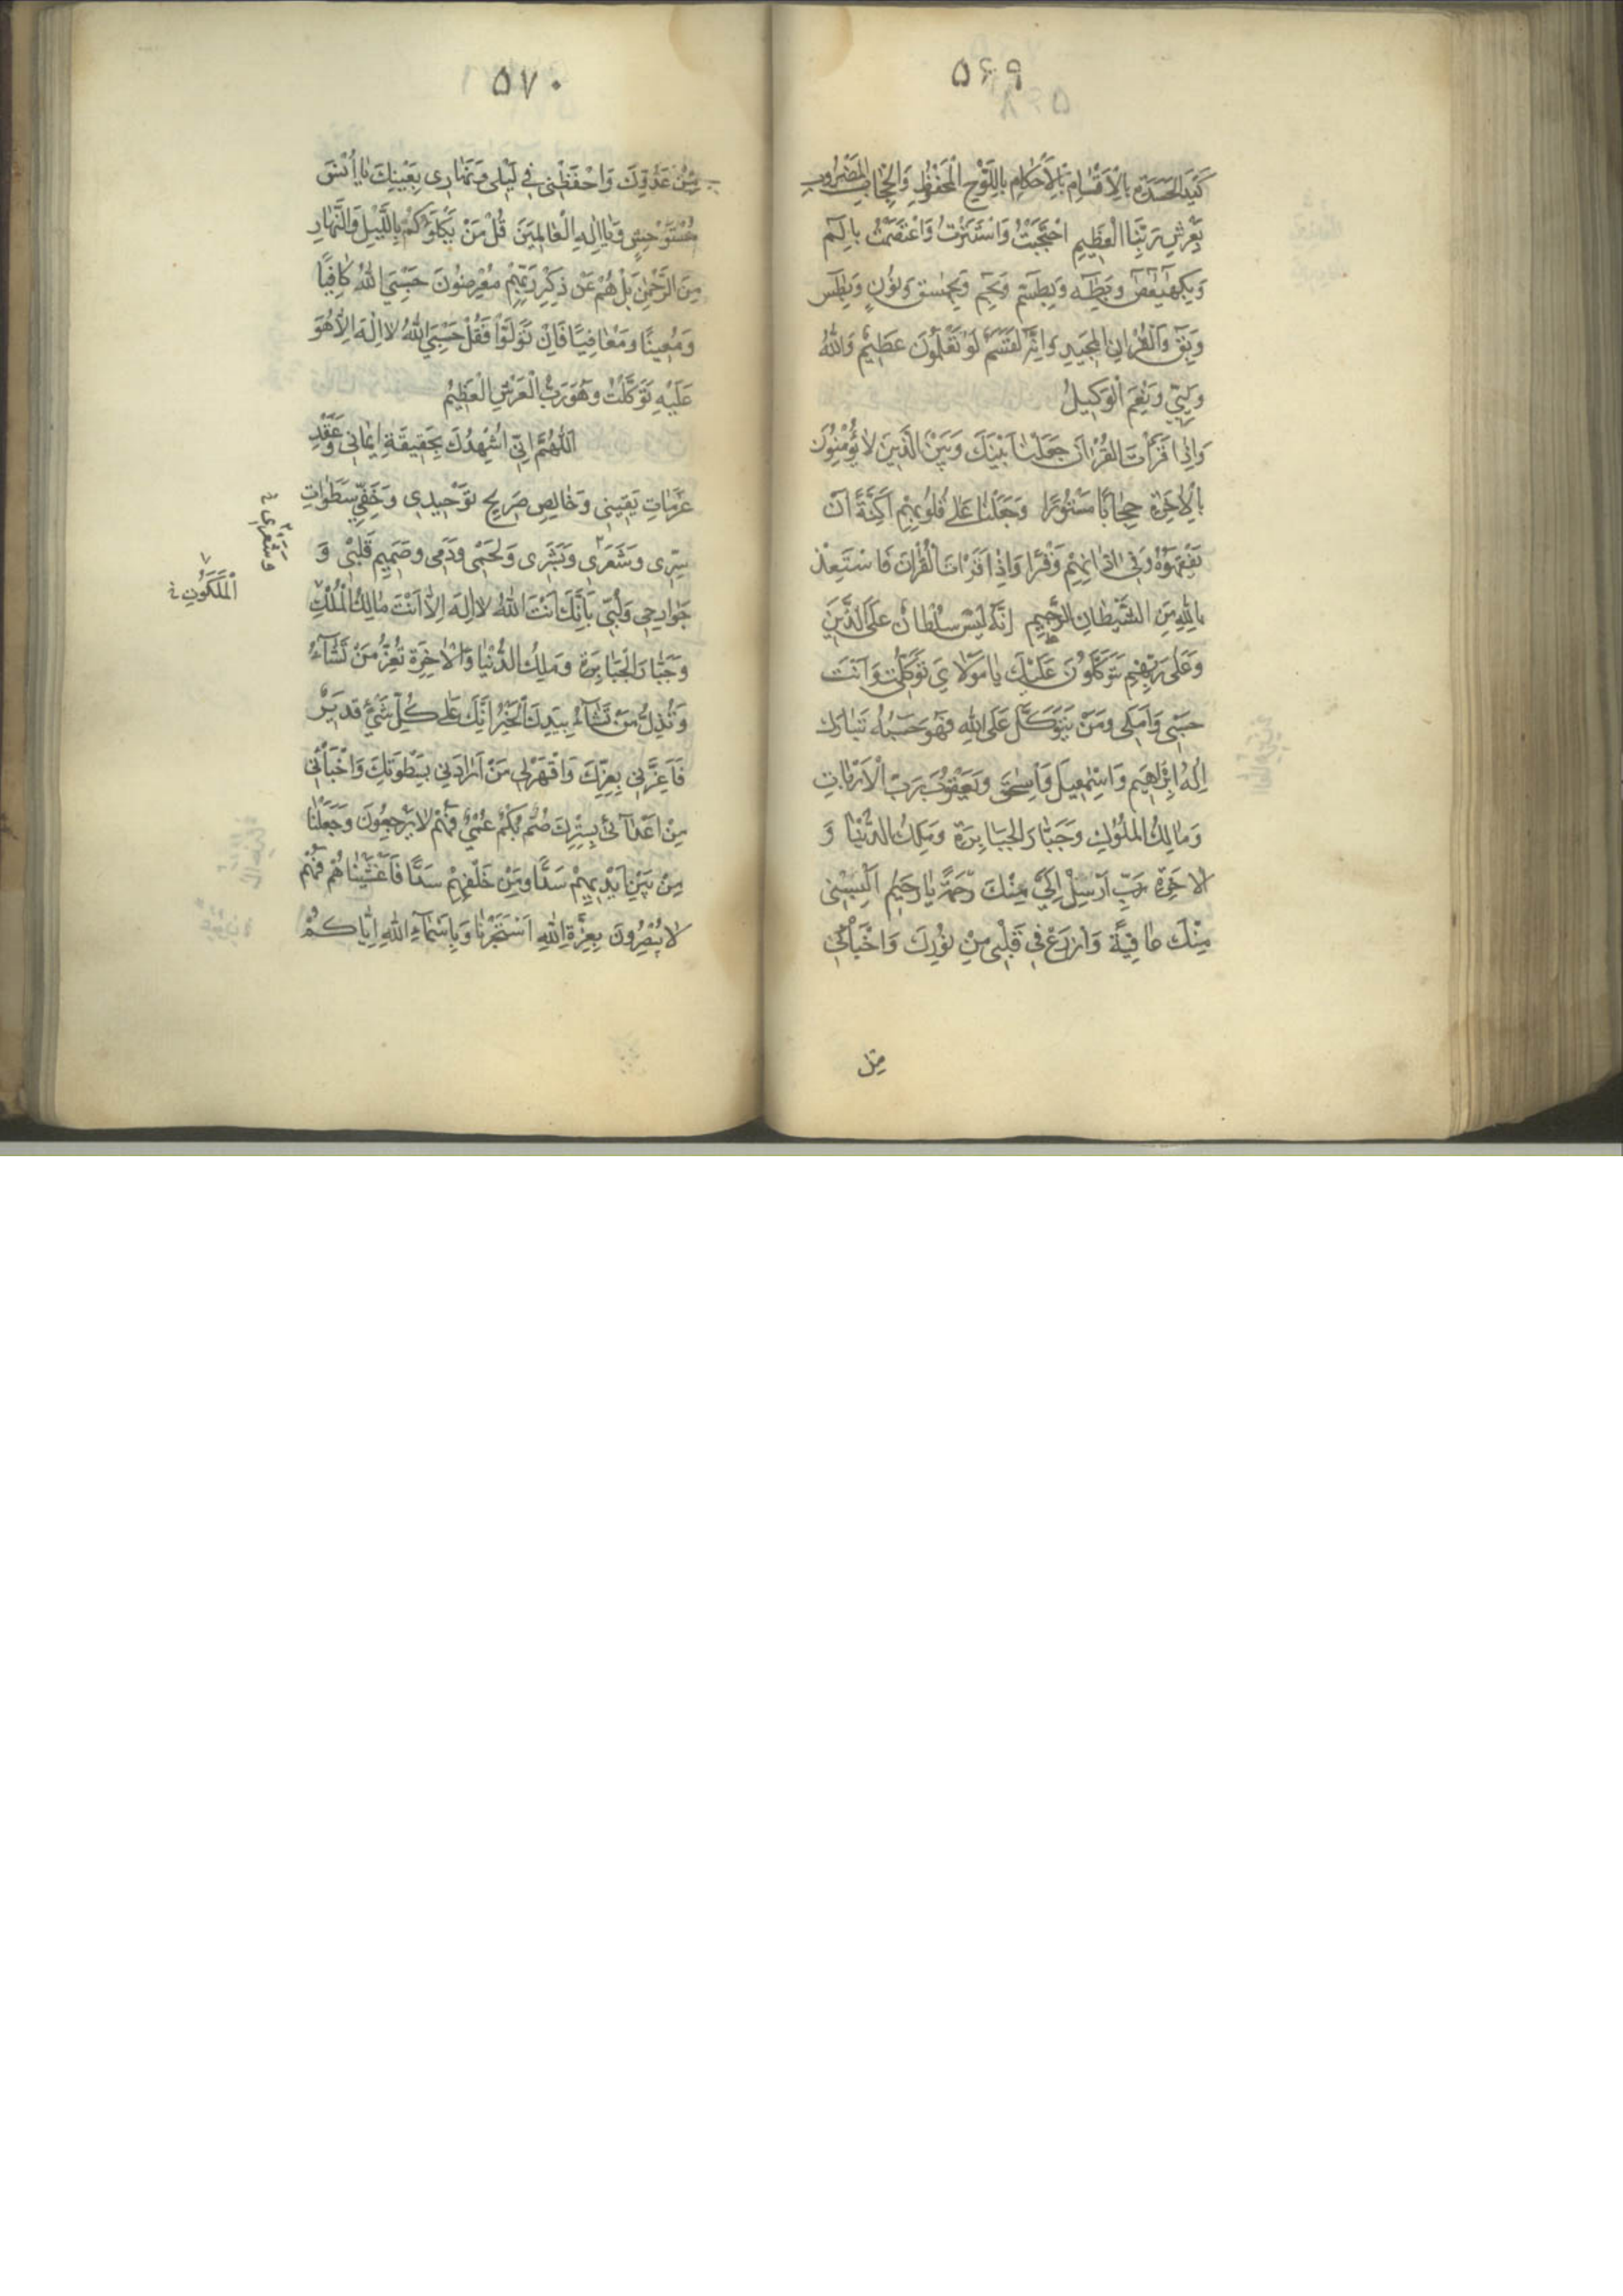 ۵۶۹
كَيْدَ الْحَسَدَةِ بِالْاَقْسٰامِ بِالْاَحْكٰامِ بِاللَّوْحِ الْمَحْفُوظِ وَالْحِجٰابِ الْمَضْرُوبِ
بِعَرْشِ رَبِّنَا الْعَظِيمِ احْتَجَبْتُ وَاسْتَتَرْتُ وَاعْتَصَمْتُ بِالٓمٓ
وَبِكٓهٰيٰعٓصٓ وَبِطٰهٰ وَبِطٰسٓمٓ وَبِحٰمٓ وَبِحٰمٓعٓسٓقٓ وَنُونٍ وَبِطٰسٓ
وَبِقٓ وَالْقُرْاٰنِ الْمَجِيدِ وَاِنَّهُ لَقَسَمٌ لَوْ تَعْلَمُونَ عَظِيمٌ وَاللّٰهُ
وَلِيِّي وَنِعْمَ الْوَكِيلُ
وَاِذٰا قَرَأْتَ الْقُرْاٰنَ جَعَلْنٰا بَيْنَكَ وَبَيْنَ الَّذِينَ لٰا يُؤْمِنُونَ
بِالْاٰخِرَةِ حِجٰابًا مَسْتُورًا وَجَعَلْنٰا عَلٰى قُلُوبِهِمْ اَكِنَّةً اَنْ
يَفْقَهُوهُ وَفِي اٰذٰانِهِمْ وَقْرًا وَاِذٰا قَرَأْتَ الْقُرْاٰنَ فَاسْتَعِذْ
بِاللّٰهِ مِنَ الشَّيْطٰانِ الرَّجِيمِ اِنَّهُ لَيْسَ سُلْطٰانٌ عَلَى الَّذِينَ
وَعَلٰى رَبِّهِمْ يَتَوَكَّلُونَ عَلَيْكَ يٰا مَوْلٰايَ تَوَكَّلْتُ وَاَنْتَ
حَسْبِي وَاَمَلِي وَمَنْ يَتَوَكَّلْ عَلَى اللّٰهِ فَهُوَ حَسْبُهُ تَبٰارَكَ
اِلٰهُ اِبْرٰاهِيمَ وَاِسْمٰعِيلَ وَاِسْحٰقَ وَيَعْقُوبَ رَبِّ الْاَرْبٰابِ
وَمٰالِكُ الْمُلُوكِ وَجَبّٰارُ الْجَبٰابِرَةِ وَمَلِكُ الدُّنْيٰا وَ
الْاٰخِرَةِ رَبِّ اَرْسِلْ اِلَيَّ مِنْكَ رَحْمَةً يٰا رَحِيمُ اَلْبِسْنِي
مِنْكَ عٰافِيَةً وَازْرَعْ فِي قَلْبِي مِنْ نُورِكَ وَاخْبَأْنِي
مِنْ
۵۷۰
مِنْ عَدُوِّكَ وَاحْفَظْنِي فِي لَيْلِي وَنَهٰارِي بِعَيْنِكَ يٰا اُنْسَ
مُسْتَوْحِشٍ وَيٰا اِلٰهَ الْعٰالَمِينَ قُلْ مَنْ يَكْلَؤُكُمْ بِاللَّيْلِ وَالنَّهٰارِ
مِنَ الرَّحْمٰنِ بَلْ هُمْ عَنْ ذِكْرِ رَبِّهِمْ مُعْرِضُونَ حَسْبِيَ اللّٰهُ كٰافِيًا
وَمُعِينًا وَمُعٰافِيًا فَاِنْ تَوَلَّوْا فَقُلْ حَسْبِيَ اللّٰهُ لٰا اِلٰهَ اِلّٰا هُوَ
عَلَيْهِ تَوَكَّلْتُ وَهُوَ رَبُّ الْعَرْشِ الْعَظِيمُ
اَللّٰهُمَّ اِنِّي اُشْهِدُكَ بِحَقِيقَةِ اِيمٰانِي وَعَقْدِ
عَزَمٰاتِ يَقِينِي وَخٰالِصِ صَرِيحِ تَوْحِيدِي وَخَفِيِّ سَطَوٰاتِ
سِرِّي وَشَعْرِي وَبَشَرِي وَلَحْمِي وَدَمِي وَصَمِيمِ قَلْبِي وَ
وَشَعْرِي
جَوٰارِحِي وَلُبِّي بِاَنَّكَ اَنْتَ اللّٰهُ لٰا اِلٰهَ اِلّٰا اَنْتَ مٰالِكُ الْمُلْكِ
الْمَلَكُوتِ
وَجَبّٰارُ الْجَبٰابِرَةِ وَمَلِكُ الدُّنْيٰا وَالْاٰخِرَةِ تُعِزُّ مَنْ تَشٰاءُ
وَتُذِلُّ مَنْ تَشٰاءُ بِيَدِكَ الْخَيْرُ اِنَّكَ عَلٰى كُلِّ شَيْءٍ قَدِيرٌ
فَاَعِزَّنِي بِعِزِّكَ وَاقْهَرْ لِي مَنْ اَرٰادَنِي بِسَطْوَتِكَ وَاخْبَأْنِي
مِنْ اَعْدٰائِي بِسِتْرِكَ صُمٌّ بُكْمٌ عُمْيٌ فَهُمْ لٰا يَرْجِعُونَ وَجَعَلْنٰا
مِنْ بَيْنِ اَيْدِيهِمْ سَدًّا وَمِنْ خَلْفِهِمْ سَدًّا فَاَغْشَيْنٰاهُمْ فَهُمْ
لٰا يُبْصِرُونَ بِعِزَّةِ اللّٰهِ اسْتَجَرْنٰا وَبِاَسْمٰاءِ اللّٰهِ اِيّٰاكُمْ